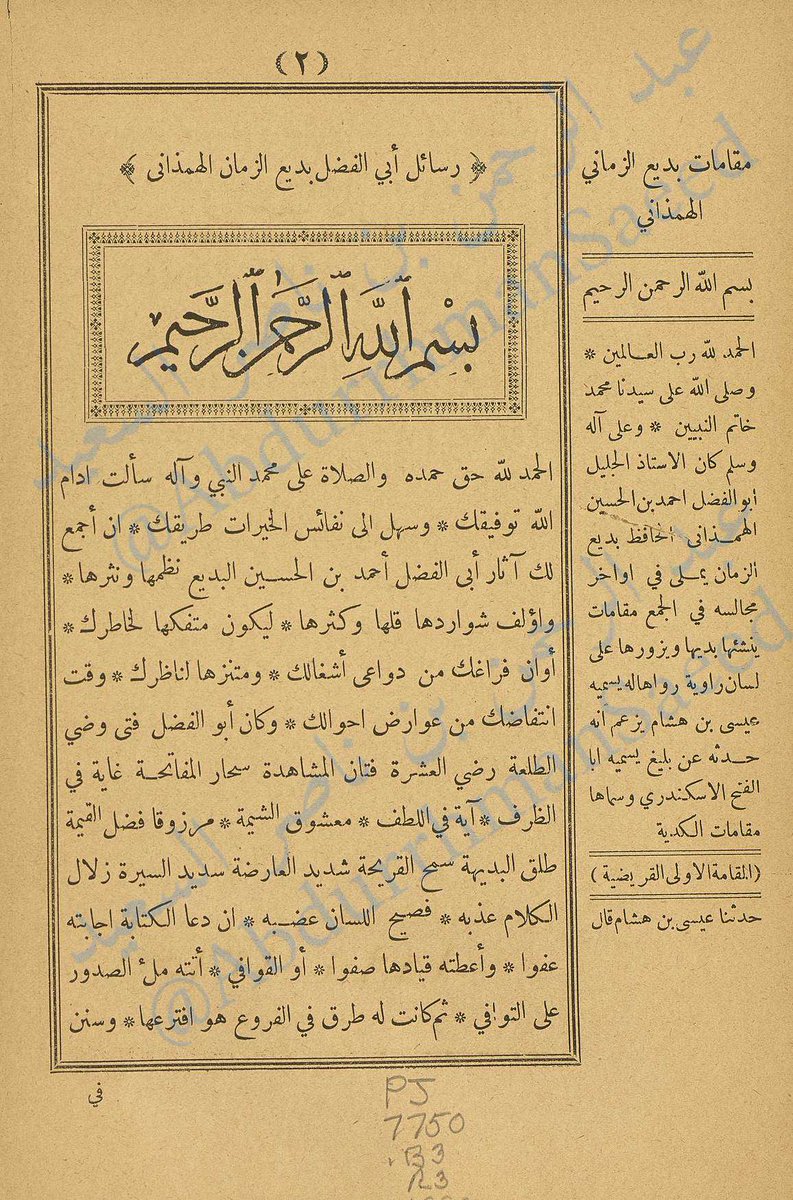 (٢)
رسائل أبي الفضل بديع الزمان الهمذانى
بسم الله الرحمن الرحيم
الحمد لله حق حمده والصلاة على محمد النبي وآله سألت ادام
الله توفيقك * وسهل الى نفائس الخيرات طريقك * ان أجمع
لك آثار أبى الفضل أحمد بن الحسين البديع نظمها ونثرها *
واؤلف شواردها قلها وكثرها * ليكون متفكها لخاطرك *
أوان فراغك من دواعى أشغالك * ومتنزها لناظرك * وقت
انتفاضك من عوارض احوالك * وكان أبو الفضل فتى وضي
الطلعة رضي العشرة فتان المشاهدة سحار المفاتحة غاية في
الظرف * آية في اللطف * معشوق الشيمة * مرزوقا فضل القيمة
طلق البديهة سمح القريحة شديد العارضة سديد السيرة زلال
الكلام عذبه * فصيح اللسان عضبه * ان دعا الكتابة اجابته
عفوا * وأعطته قيادها صفوا * أو القوافي * أتته ملء الصدور
على التوافي * ثم كانت له طرق في الفروع هو افترعها * وسنن
في
مقامات بديع الزماني
الهمذاني
بسم الله الرحمن الرحيم
الحمد لله رب العالمين *
وصلى الله على سيدنا محمد
خاتم النبيين * وعلى آله
وسلم كان الاستاذ الجليل
ابو الفضل احمد بن الحسين
الهمذانى الحافظ بديع
الزمان يملى في اواخر
مجالسه في الجمع مقامات
ينشئها بديها ويزورها على
لسان راوية رواها له يسميه
عيسى بن هشام يزعم انه
حدثه عن بليغ يسميه ابا
الفتح الاسكندري وسماها
مقامات الكدية
(المقامة الاولى القريضية)
حدثنا عيسى بن هشام قال
PJ
7750
.B3
R3
عبد الرحمن بن ناصر السعيد
@AbdurrhmanSaeed
عبد الرحمن بن ناصر السعيد
@AbdurrhmanSaeed